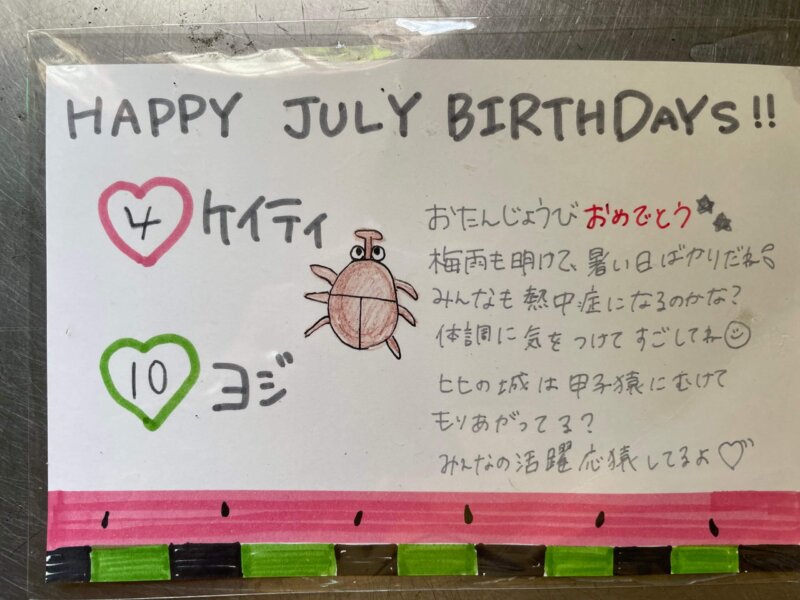 HAPPY JULY BIRTHDAYS!!
4 ケイティ
10 ヨジ
おたんじょうび おめでとう
梅雨も明けて、暑い日ばかりだね
みんなも熱中症になるのかな?
体調に気をつけてすごしてね
ヒヒの城は甲子猿にむけて
もりあがってる?
みんなの活躍応猿してるよ♡